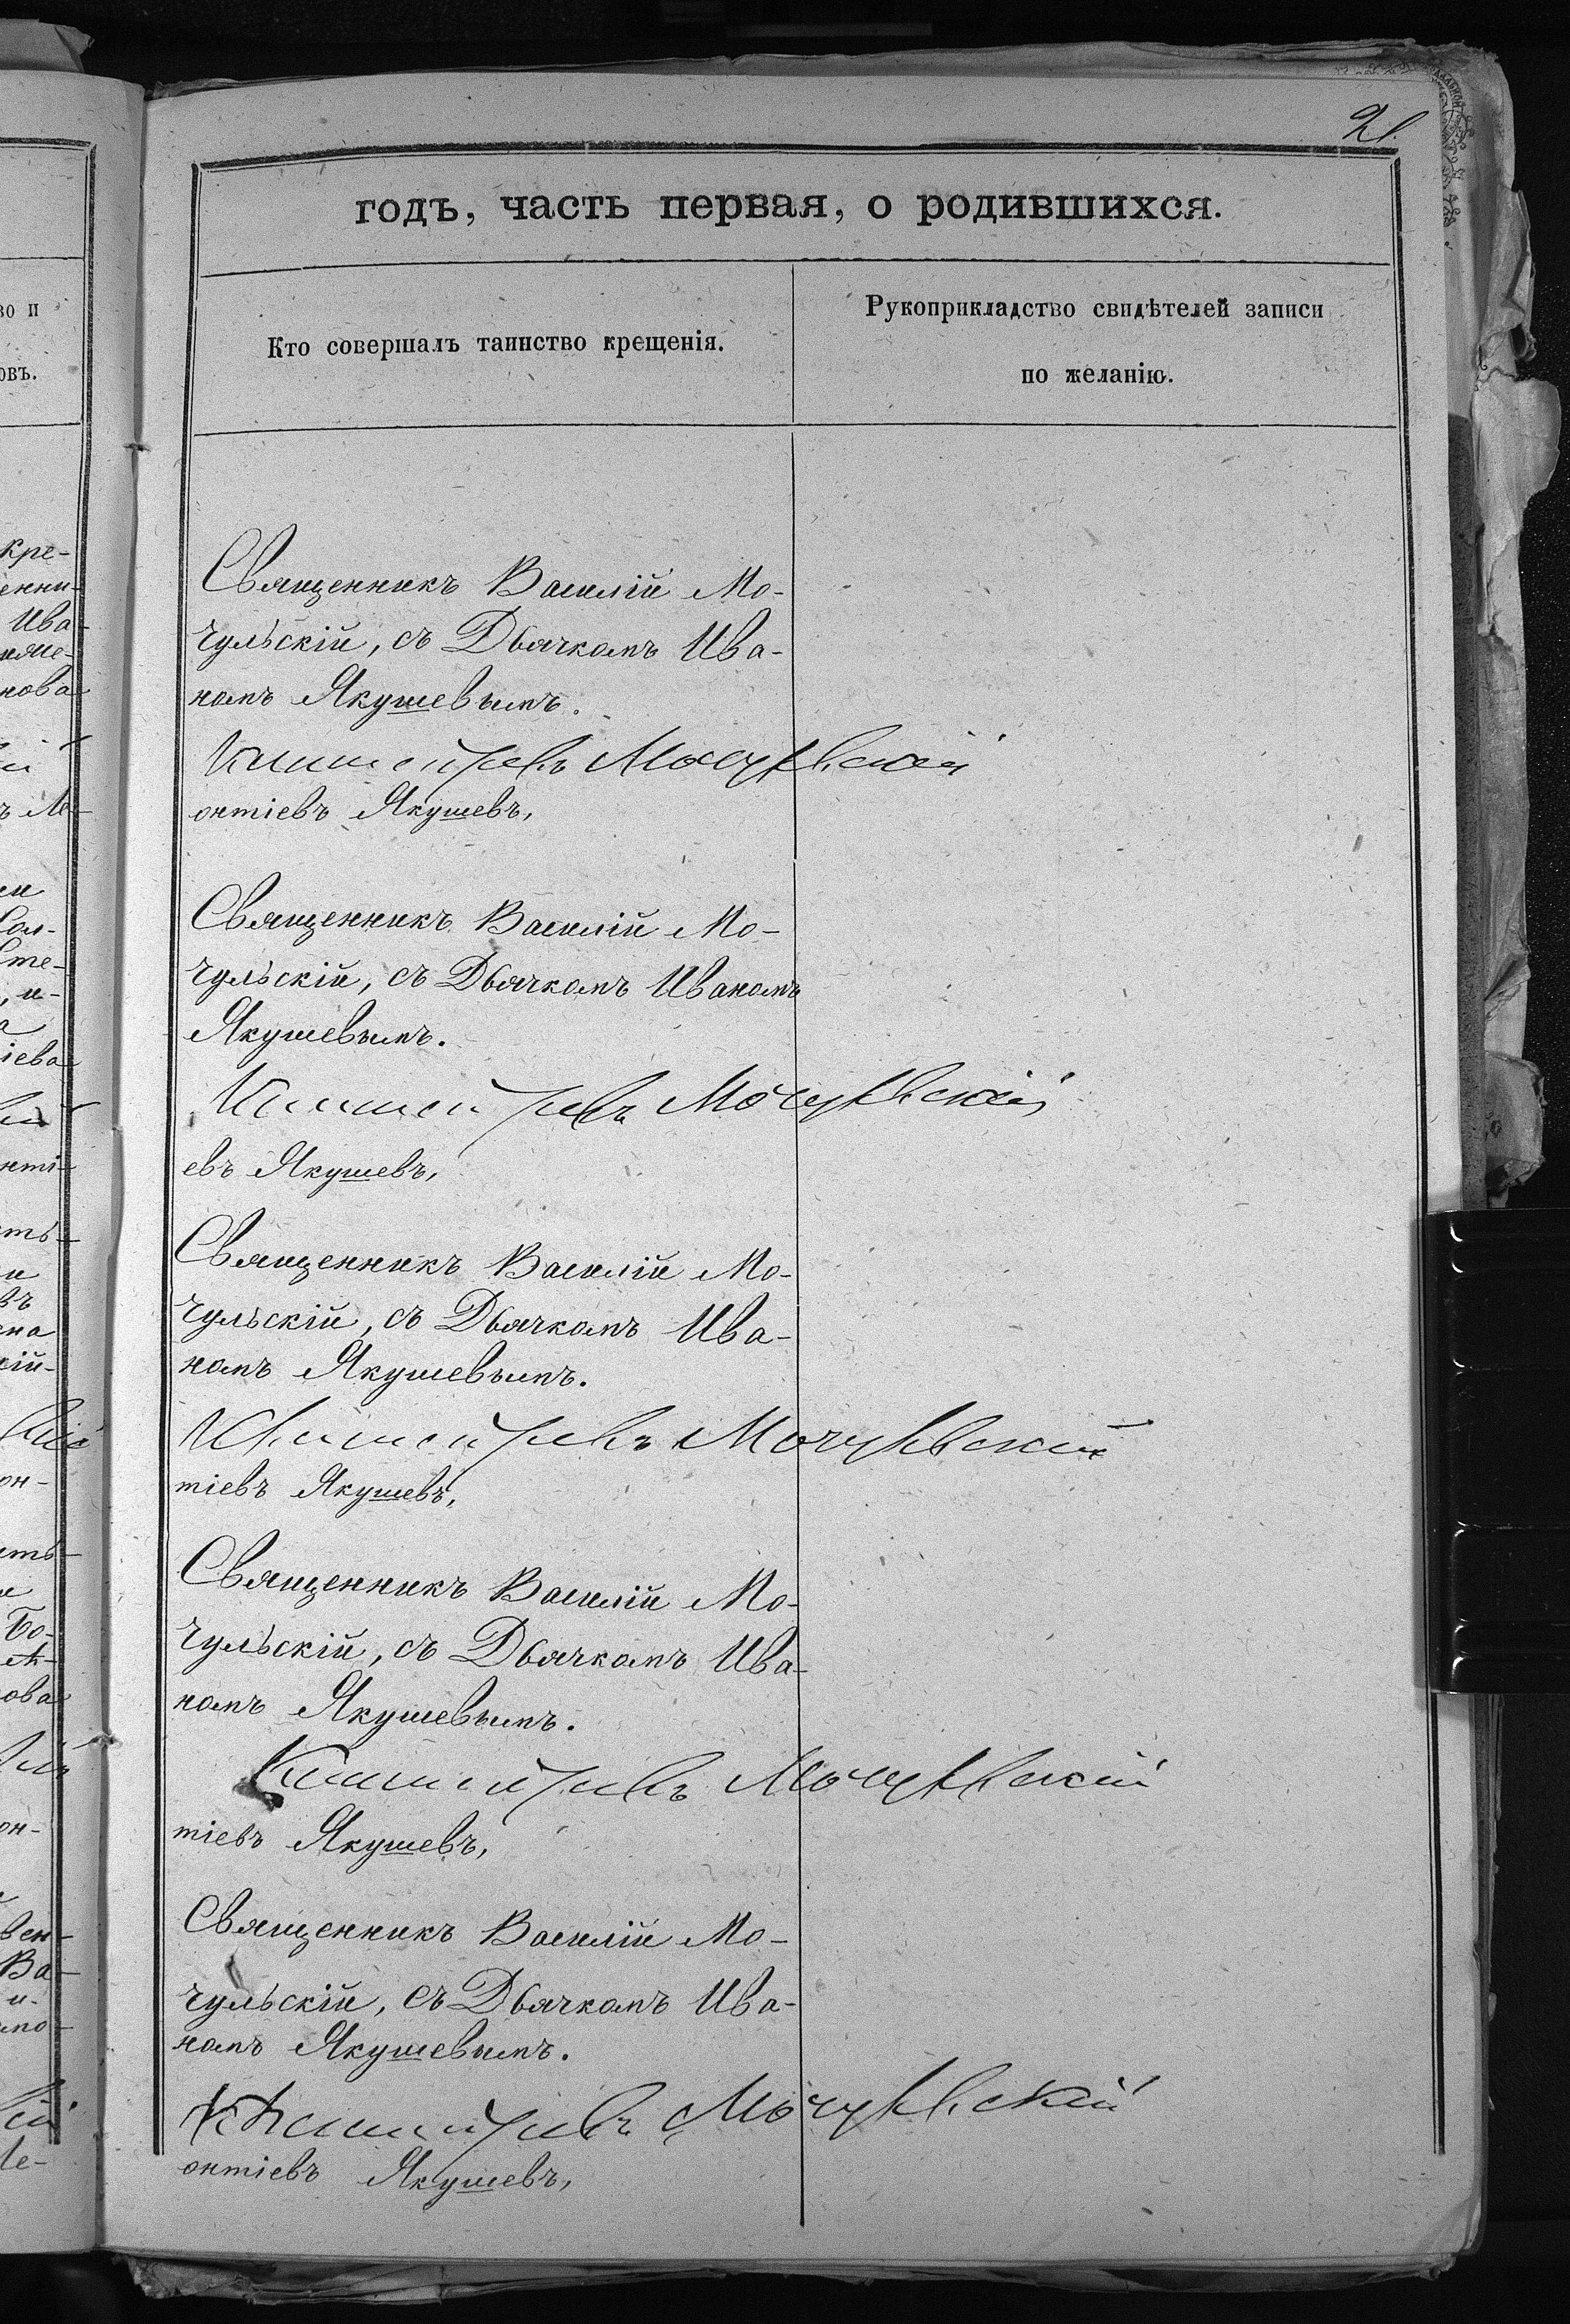 21.
годъ, часть первая, о родившихся.
Кто совершалъ таинство крещенія.
Рукоприкладство свидѣтелей записи
по желанію.
Священникъ Василій Мо-
чульскій, съ Дьячкомъ Ива-
номъ Якушевымъ.
Мочульскій
онтіевъ Якушевъ,
Священникъ Василій Мо-
чульскій, съ Дьячкомъ Иваномъ
Якушевымъ.
Мочульскій
евъ Якушевъ,
Священникъ Василій Мо-
чульскій, съ Дьячкомъ Ива-
номъ Якушевымъ.
Мочульскій
тіевъ Якушевъ,
Священникъ Василій Мо-
чульскій, съ Дьячкомъ Ива-
номъ Якушевымъ.
Мочульскій
тіевъ Якушевъ,
Священникъ Василій Мо-
чульскій, съ Дьячкомъ Ива-
номъ Якушевымъ.
Мочульскій
онтіевъ Якушевъ,